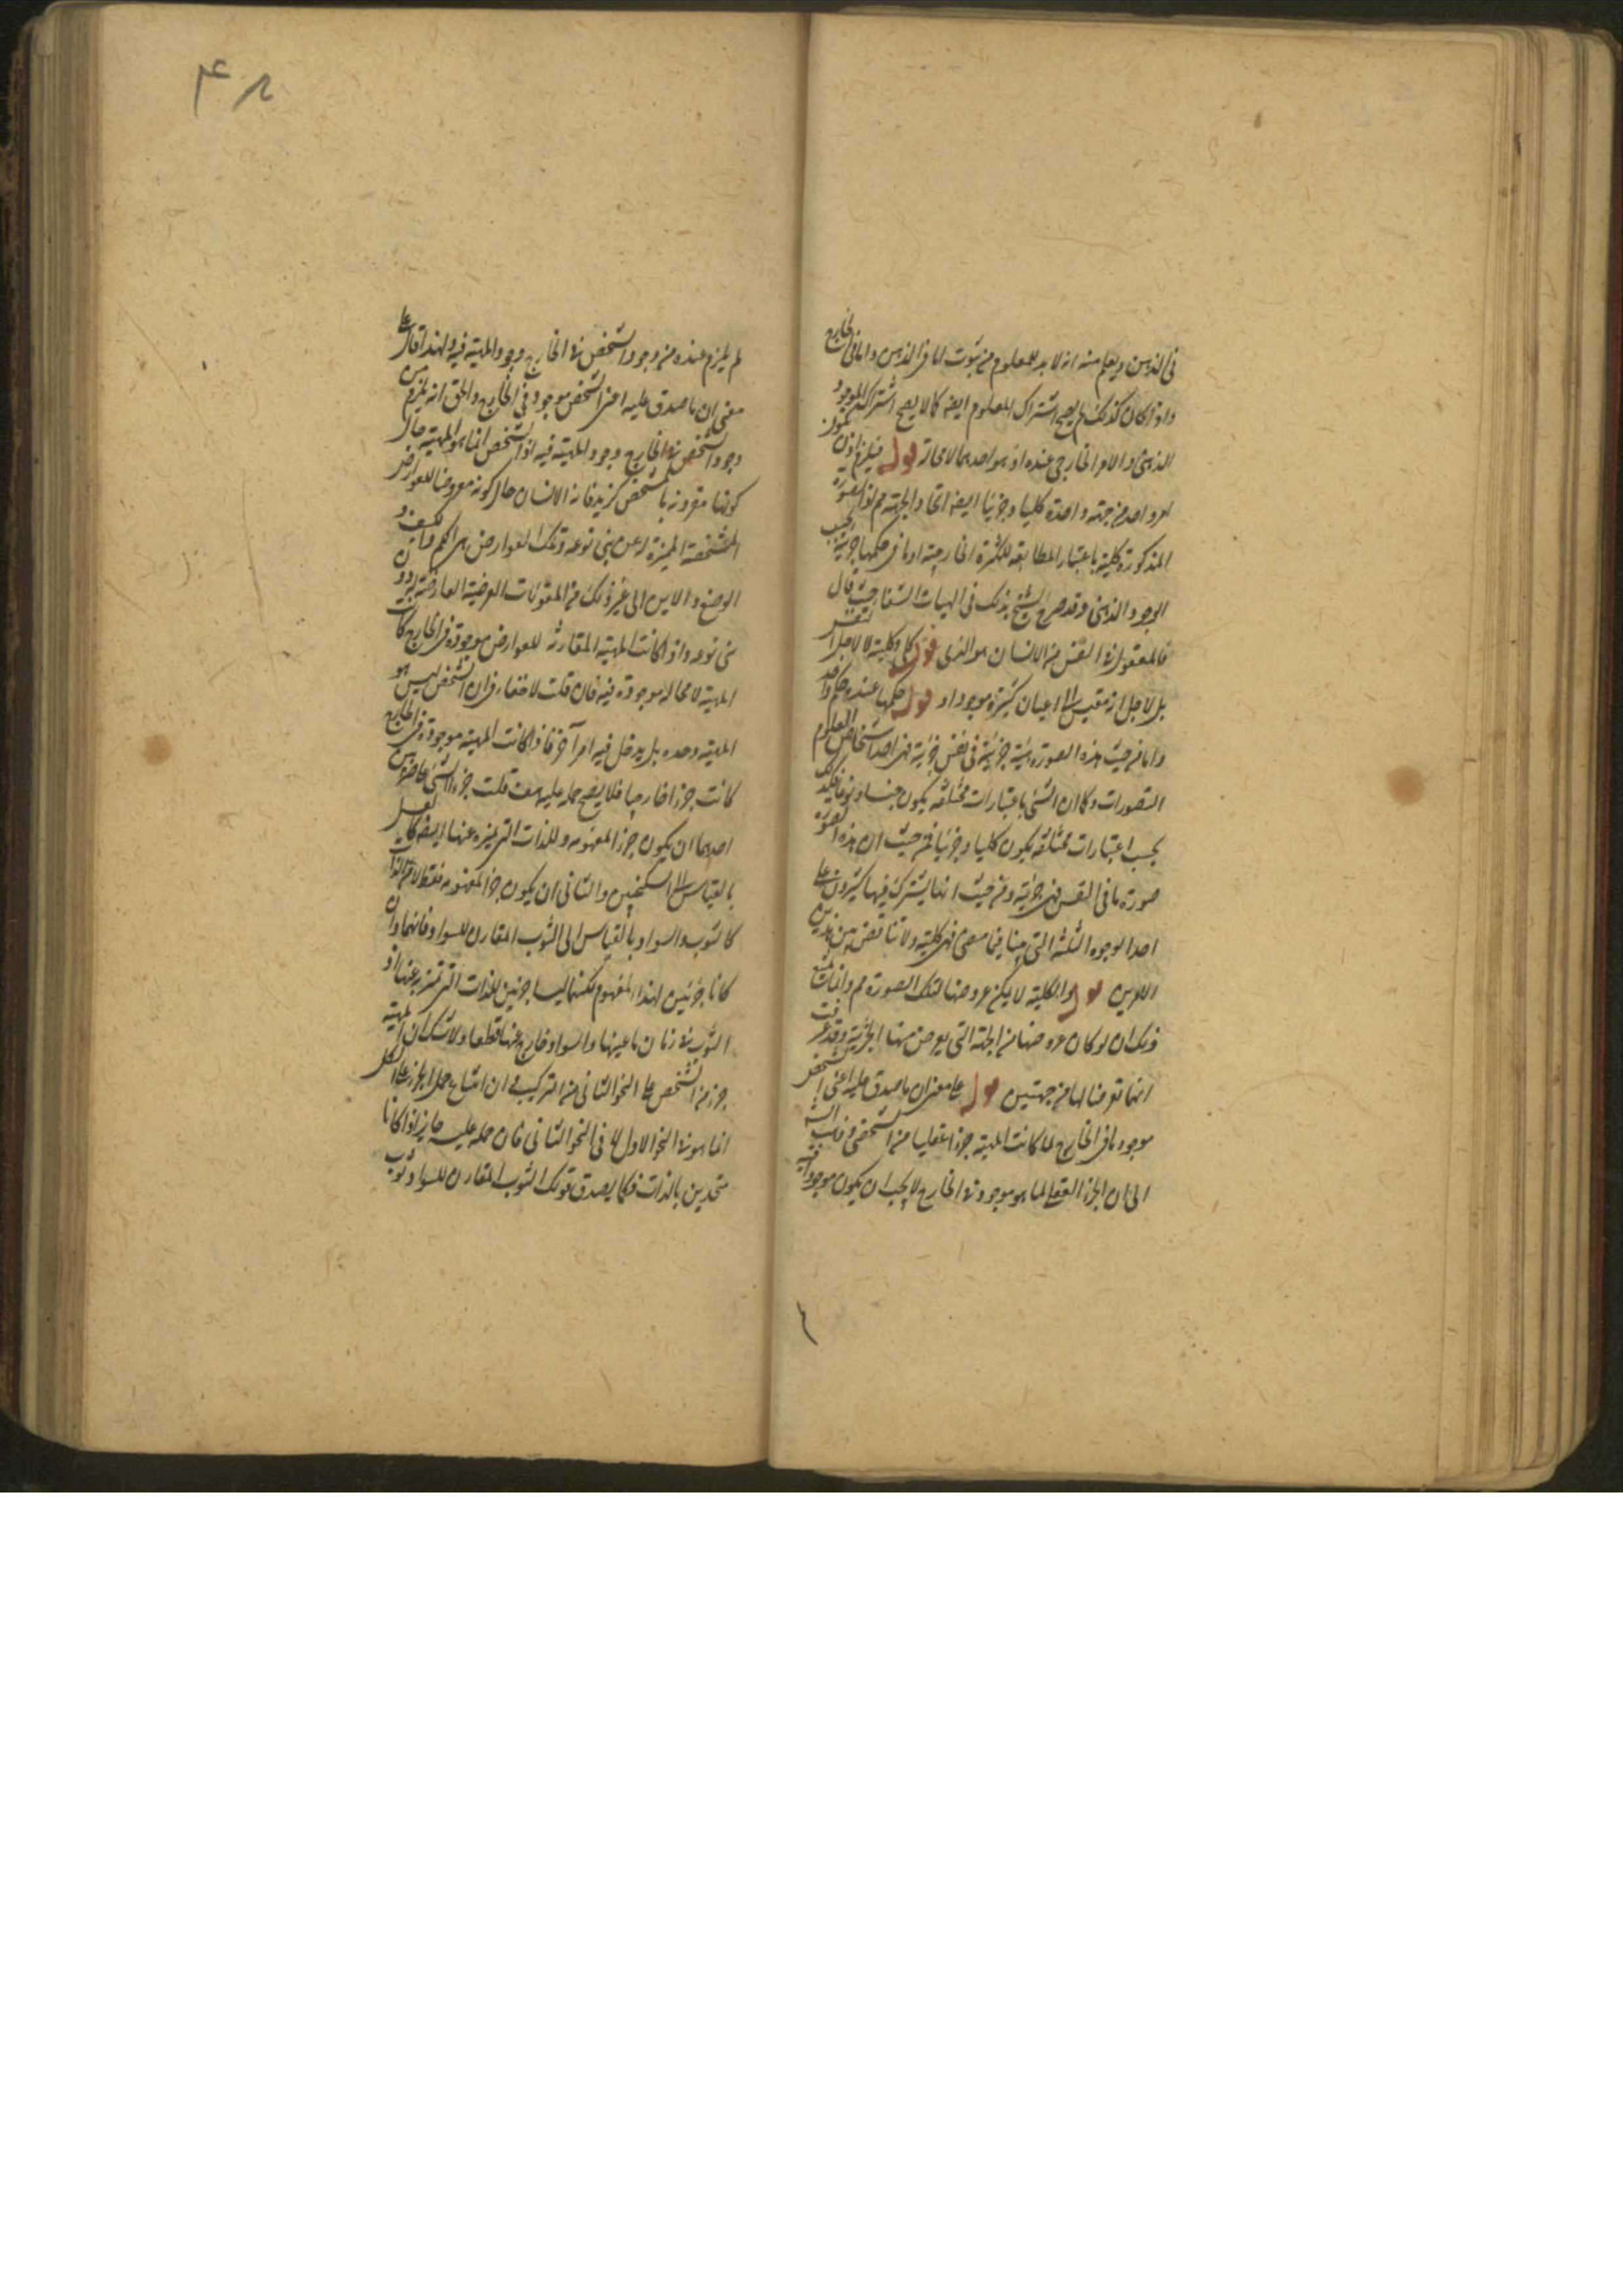 في الذهن ويعلم منه انه لا بد للمعلوم من ثبوت اما في الذهن واما في الخارج
واذا كان كذلك لم يصح اشتراك المعلوم ايضا كما لا يصح اشتراك الموجود
الذهني والامر الخارجي عنده اذ هو احدهما لا محالة قوله فيلزم اذن
امر واحد من جهة واحدة كليا وجزئيا ايضا اتحاد الجهة مم لان الصورة
المذكورة كلية باعتبار المطابقة للكثرة الخارجية او ما في حكمها جزئية بحسب
الوجود الذهني وقد صرح الشيخ بذلك في الهيات الشفا حيث قال
فالمعقول في النفس من الانسان هو الذي قوله كلي وكلية لا لاجل
بل لاجل انه مقيس الى اعيان كثيرة موجودة او قوله حكمها عنده حكم واحد
واما من حيث هذه الصورة هيئة جزئية في نفس جزئية فهي احد اشخاص العلوم
التصورات وكما ان الشيء باعتبارات مختلفة يكون جنسا ونوعا فكذلك
بحسب اعتبارات مختلفة يكون كليا وجزئيا فمن حيث ان هذه الصورة
صورة ما في النفس فهي جزئية ومن حيث انها يشترك فيها كثيرون على
احد الوجوه الثلثة التي بينا فيما مضى فهي كلية ولا تناقض بين هذين
الامرين قوله والكلية لا يمكن عروضها لتلك الصورة مم وانما يمتنع
ذلك ان لو كان عروضها من الجهة التي يعرض منها الجزئية وقد عرفت
انهما تعرضا لها من جهتين قوله على معنى ان ما صدق عليه اعني الشخص
موجود في الخارج لما كانت المهية جزءا عقليا من الشخص وذهب
الى ان الجزء العقلي لما هو موجود في الخارج لا يجب ان يكون موجودا فيه
۴۸
لم يلزم عنده من وجود الشخص في الخارج وجود المهية فيه ولهذا قال على
معنى ان ما صدق عليه اعني الشخص موجود في الخارج والحق انه يلزم من
وجود الشخص في الخارج وجود المهية فيه اذ الشخص انما هو المهية حال
كونها مقرونة بالتشخص كزيد فانه الانسان حال كونه معروضا للعوارض
المشخصة المميزة له عن بني نوعه وتلك العوارض هي الكم والكيف و
الوضع والاين الى غير ذلك من المقولات العرضية العارضة له دون
بني نوعه واذا كانت المهية المقارنة للعوارض موجودة في الخارج كانت
المهية لا محالة موجودة فيه فان قلت لا خفاء في ان الشخص ليس هو
المهية وحده بل يدخل فيه امر آخر فاذا كانت المهية موجودة في الخارج
كانت جزءا خارجيا فلا يصح حمله عليه قلت جزء الشيء على ضربين
احدهما ان يكون جزءا لمفهومه وللذات التي يعبر به عنها ايضا كالعسل
بالقياس الى السكنجبين والثاني ان يكون جزءا لمفهومه فقط لا للذات
كالثوب والسواد بالقياس الى الثوب المقارن للسواد فانهما وان
كانا جزئين لهذا المفهوم لكنهما ليسا جزئين للذات التي تعبر به عنها اذ
الثوب عينها والسواد خارج عنها قطعا ولا شك ان المهية
جزء من الشخص على النحو الثاني من التركيب ان امتناع حمل الجزء على الكل
انما هو في النحو الاول لا في النحو الثاني فان حمله عليه جايز اذا كانا
متحدين بالذات فكما يصدق قولك الثوب المقارن للسواد ثوب